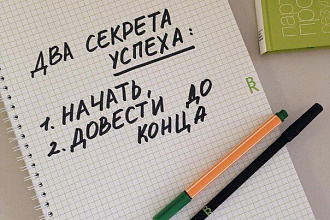 ДВА СЕКРЕТА
УСПЕХА:
1. НАЧАТЬ,
2. ДОВЕСТИ ДО
КОНЦА